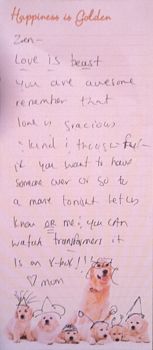 Happiness is Golden
Zen-
Love is beast
you are awesome
remember that
love is gracious
kind &
if you want to have
someone over or go to
a movie tonight let us
know OR me: you can
watch transformers it
is on X-box!!
♡ mom